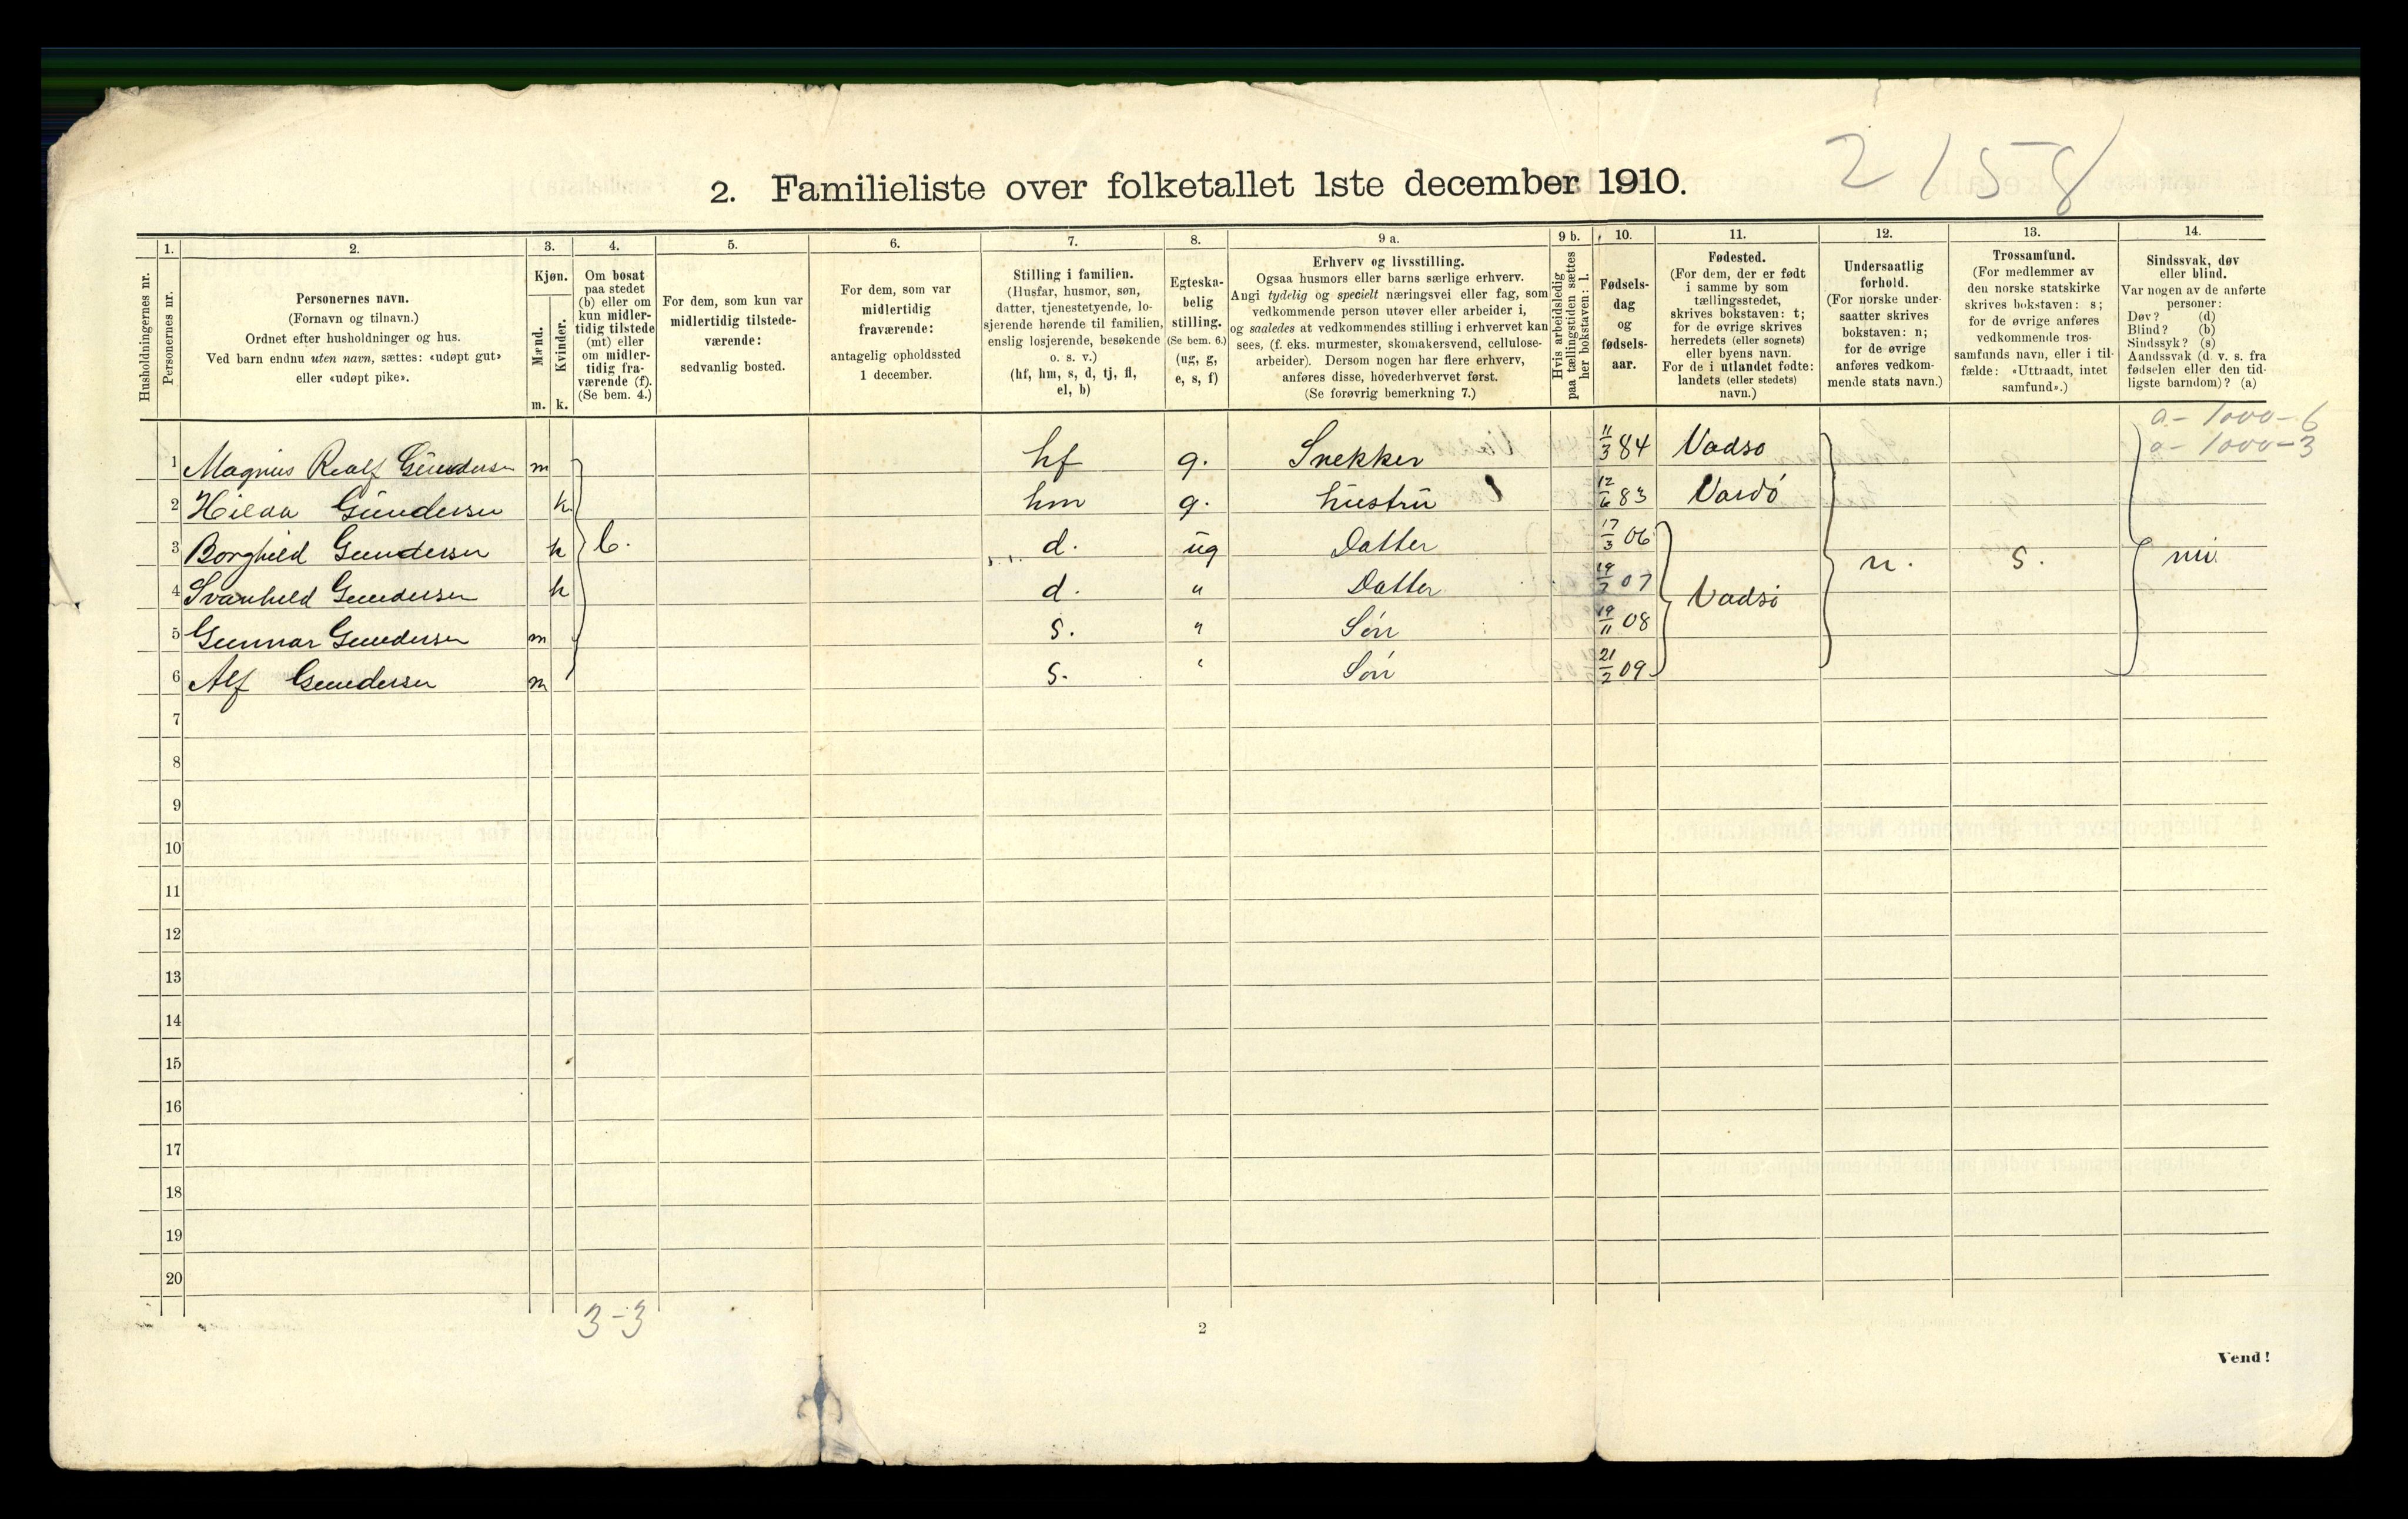 2 158
2. Familieliste over folketallet 1ste december 1910.
Husholdningernes nr.
1.
Personernes nr.
2.
Personernes navn.
(Fornavn og tilnavn.)
Ordnet efter husholdninger og hus.
Ved barn endnu uten navn, sættes: «udøpt gut»
eller «udøpt pike».
3.
Kjøn.
Mænd.
Kvinder.
m. k.
4.
Om bosat
paa stedet
(b) eller om
kun midler-
tidig tilstede
(mt) eller
om midler-
tidig fra-
værende (f).
(Se bem. 4.)
5.
For dem, som kun var
midlertidig tilstede-
værende:
sedvanlig bosted.
6.
For dem, som var
midlertidig
fraværende:
antagelig opholdssted
1 december.
7.
Stilling i familien.
(Husfar, husmor, søn,
datter, tjenestetyende, lo-
sjerende hørende til familien,
enslig losjerende, besøkende
o. s. v.)
(hf, hm, s, d, tj, fl,
el, b)
8.
Egteska-
belig
stilling.
(Se bem. 6.)
(ug, g,
e, s, f)
9 a.
Erhverv og livsstilling.
Ogsaa husmors eller barns særlige erhverv.
Angi tydelig og specielt næringsvei eller fag, som
vedkommende person utøver eller arbeider i,
og saaledes at vedkommendes stilling i erhvervet kan
sees, (f. eks. murmester, skomakersvend, cellulose-
arbeider). Dersom nogen har flere erhverv,
anføres disse, hovederhvervet først.
(Se forøvrig bemerkning 7.)
9 b.
Hvis arbeidsledig
paa tællingstiden sættes
her bokstaven: l.
10.
Fødsels-
dag
og
fødsels-
aar.
11.
Fødested.
(For dem, der er født
i samme by som
tællingsstedet,
skrives bokstaven: t;
for de øvrige skrives
herredets (eller sognets)
eller byens navn.
For de i utlandet fødte:
landets (eller stedets)
navn.)
12.
Undersaatlig
forhold.
(For norske under-
saatter skrives
bokstaven: n;
for de øvrige
anføres vedkom-
mende stats navn.)
13.
Trossamfund.
(For medlemmer av
den norske statskirke
skrives bokstaven: s;
for de øvrige anføres
vedkommende tros-
samfunds navn, eller i til-
fælde: «Uttraadt, intet
samfund».)
14.
Sindssvak, døv
eller blind.
Var nogen av de anførte
personer:
Døv? (d)
Blind? (b)
Sindssyk? (s)
Aandssvak (d. v. s. fra
fødselen eller den tid-
ligste barndom)? (a)
a - 1000 - 6
a - 1000 - 3
1 Magnus Realf Gundersen m hf g. Snekker 11/3 84 Vadsø
2 Hilda Gundersen k. hm g. hustru 12/6 83 Vardø
3 Borghild Gundersen k b. d. ug Datter 17/3 06 n. s.
4 Svanhild Gundersen k d. " Datter 19/7 07 Vadsø
5 Gunnar Gundersen m s. " Søn 19/11 08
6 Alf Gundersen m s. " Søn 21/2 09
7
8
9
10
11
12
13
14
15
16
17
18
19
20
3-3
2
Vend!